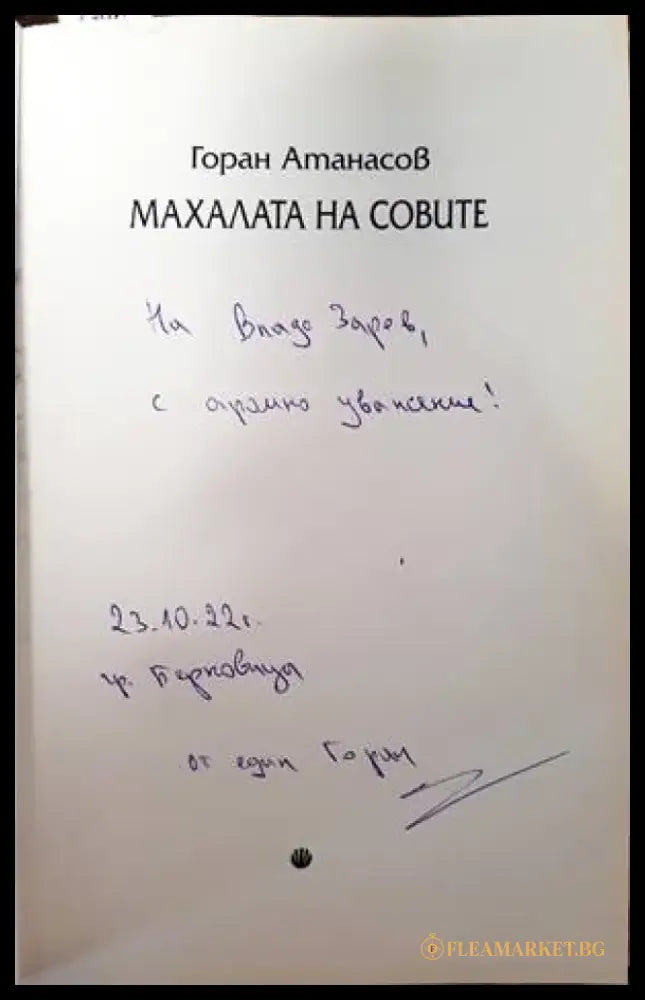 Горан Атанасов
МАХАЛАТА НА СОВИТЕ
На Владо Зарев,
с огромно уважение!
23.10.22г.
гр. Берковица
от един Горан
FLEAMARKET.BG